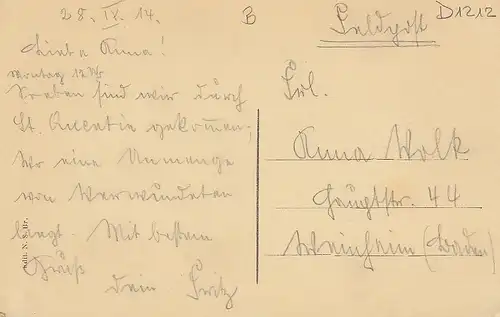 28. IX. 14.
B
Feldpost
D1212
Liebe Anna!
Montag 12 Uhr
Soeben sind wir durch
St. Quentin gekommen;
wo eine Unmenge
von Verwundeten
liegt. Mit bestem
Gruß
Dein Fritz
Frl.
Anna Volk
Hauptstr. 44
Weinheim (Baden)
Edit. N. G. Br.